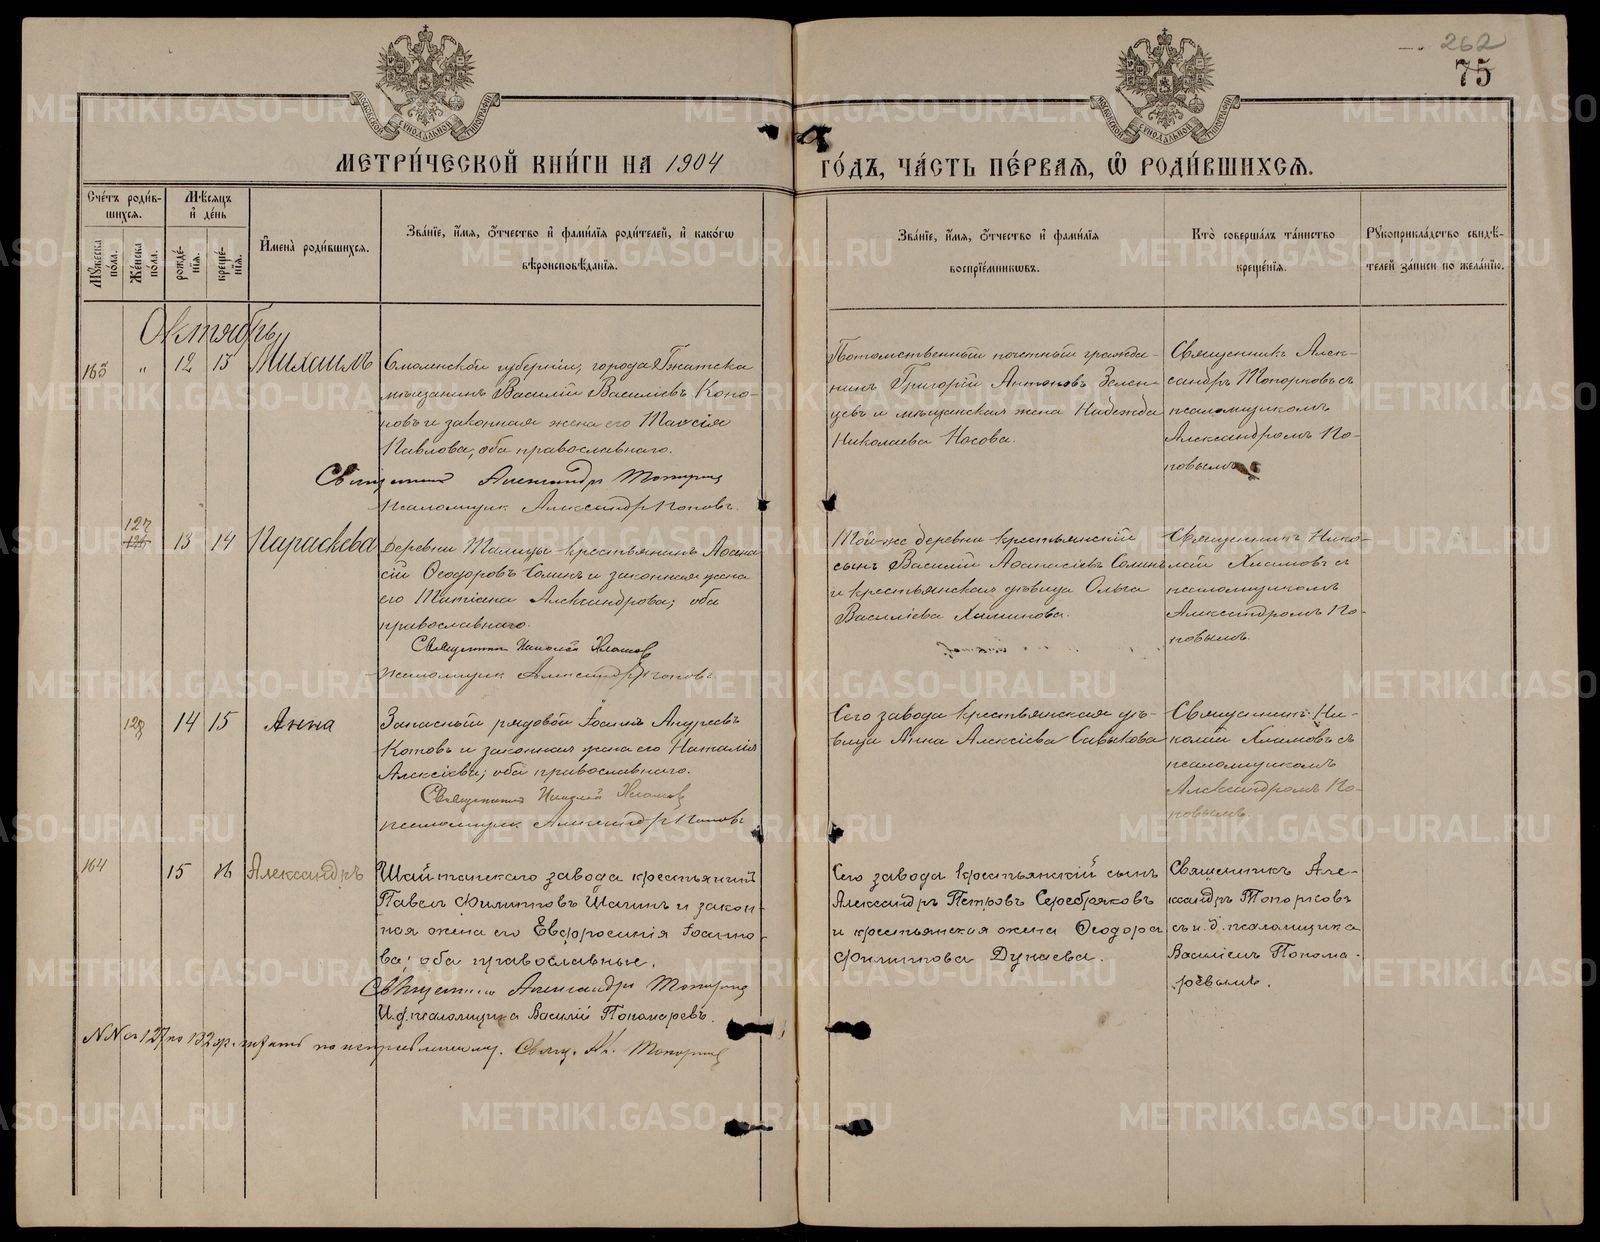 262
75
МОСКОВСКОЙ СѴНОДАЛЬНОЙ ТИПОГРАФІИ
МОСКОВСКОЙ СѴНОДАЛЬНОЙ ТИПОГРАФІИ
МЕТРИ́ЧЕСКОЙ КНИ́ГИ НА 1904
ГО́ДЪ, ЧА́СТЬ ПЕ́РВАЯ, Ѿ РОДИ́ВШИХСЯ.
Сче́тъ роди́в-
шихся.
Мѣ́сяцъ
и҆ де́нь
Мꙋ́жеска
по́ла.
Же́нска
по́ла.
рожде́-
нїя.
креще́-
нїя.
И҆мена̀ роди́вшихся.
Зва́нїе, и҆́мя, ѻ҆́тчество и҆ фами́лїя роди́телей, и҆ како́гѡ
вѣроисповѣ́данїя.
Зва́нїе, и҆́мя, ѻ҆́тчество и҆ фами́лїя
воспрїе́мникѡвъ.
Кто̀ соверша́лъ та́инство
креще́нїя.
Рꙋкоприкла́дство свидѣ́-
телей за́писи по жела́нїю.
Октябрь
163 " 12 13 Михаилъ
Смоленской губерніи, города Гжатска
мѣщанинъ Василій Василіевъ Коно-
новъ и законная жена его Таисія
Павлова, оба православнаго.
Священникъ Александръ Топорковъ
Псаломщик Александръ Поповъ.
Потомственный почетный гражда-
нинъ Григорій Антоновъ Зелен-
цовъ и мѣщанская жена Надежда
Николаева Носова.
Священникъ Алек-
сандръ Топорковъ съ
псаломщикомъ
Александромъ По-
повымъ
127
126 13 14 Параскева
Деревни Талицы крестьянинъ Аѳана-
сій Ѳеодоровъ Солинъ и законная жена
его Татіана Александрова; оба
православнаго.
Священникъ Николай Хламовъ
псаломщик Александръ Поповъ.
Той-же деревни крестьянскій
сынъ Василій Аѳанасіевъ Солинъ
и крестьянская дѣвица Ольга
Василіева
Священникъ Нико-
лай Хламовъ съ
псаломщикомъ
Александромъ По-
повымъ.
128 14 15 Анна
Запасный рядовой Іоаннъ Андреевъ
Котовъ и законная жена его Наталія
Алексіева; оба православнаго.
Священникъ Николай Хламовъ
псаломщик Александръ Поповъ
Сего завода крестьянская дѣ-
вица Анна Алексіева Савыкова
Священникъ Ни-
колай Хламовъ съ
псаломщикомъ
Александромъ По-
повымъ.
164 15 16 Александръ
Шайтанскаго завода крестьянинъ
Павелъ Филипповъ Шагинъ и закон-
ная жена его Евфросинія Іоанно-
ва; оба православные.
Священникъ Александръ Топорковъ
И.д. псаломщика Василій Пономаревъ.
Сего завода крестьянскій сынъ
Александръ Петровъ Серебряковъ
и крестьянская жена Ѳеодора
Филиппова Дунаева.
Священникъ Але-
ксандръ Топорковъ
съ и.д. псаломщика
Василіемъ Понома-
ревымъ.
NN съ 127 по 132 ж. читать по исправленному. Свящ. Ал. Топорковъ
METRIKI.GASO-URAL.RU